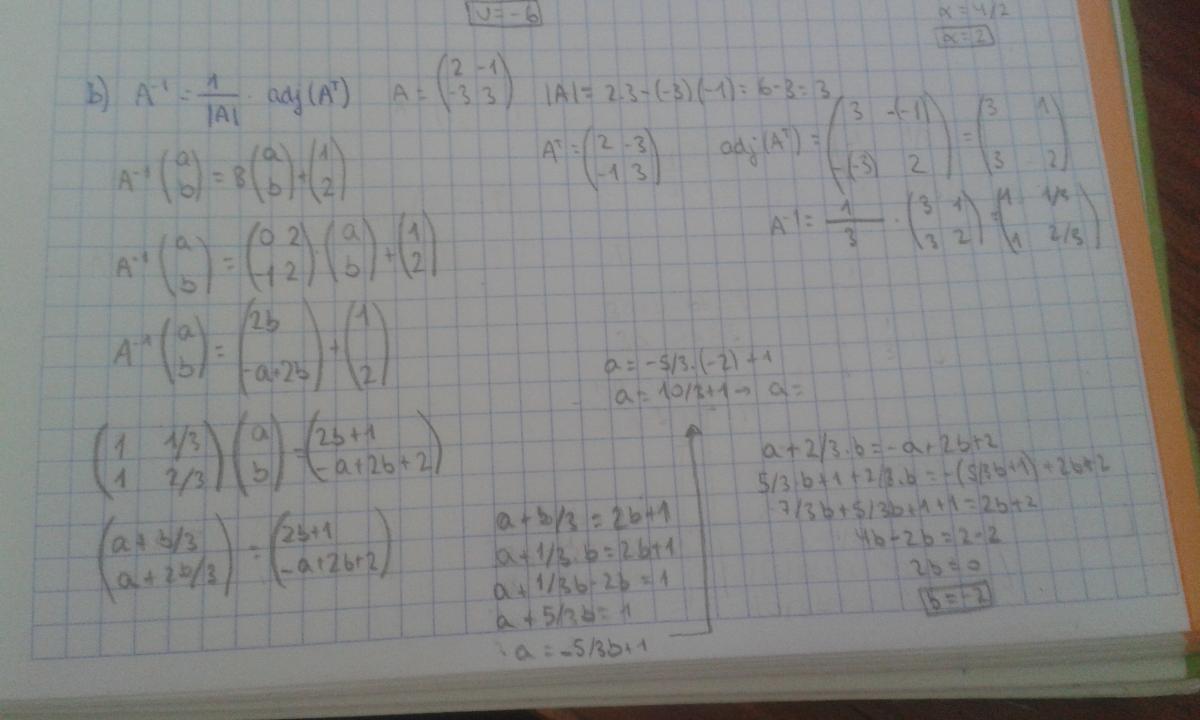 v=-6
α=4/2
α=2
b) A⁻¹ = 1/|A| · adj(Aᵀ) A = (2 -1; -3 3) |A| = 2·3-(-3)(-1) = 6-3 = 3
A⁻¹ (a; b) = B (a; b) + (1; 2)
Aᵀ = (2 -3; -1 3) adj(Aᵀ) = (3 -(-1); -(-3) 2) = (3 1; 3 2)
A⁻¹ = 1/3 · (3 1; 3 2) = (1 1/3; 1 2/3)
A⁻¹ (a; b) = (0 2; -1 2) · (a; b) + (1; 2)
A⁻¹ (a; b) = (2b; -a+2b) + (1; 2)
(1 1/3; 1 2/3) (a; b) = (2b+1; -a+2b+2)
(a+b/3; a+2b/3) = (2b+1; -a+2b+2)
a+b/3 = 2b+1
a+1/3·b = 2b+1
a+1/3b-2b = 1
a+5/3b = 1
a = -5/3b+1
a = -5/3·(-2)+1
a = 10/3+1 → a =
a+2/3·b = -a+2b+2
5/3b+1+2/3·b = -(5/3b+1)+2b+2
7/3b+5/3b+1+1 = 2b+2
4b-2b = 2-2
2b = 0
b = -2